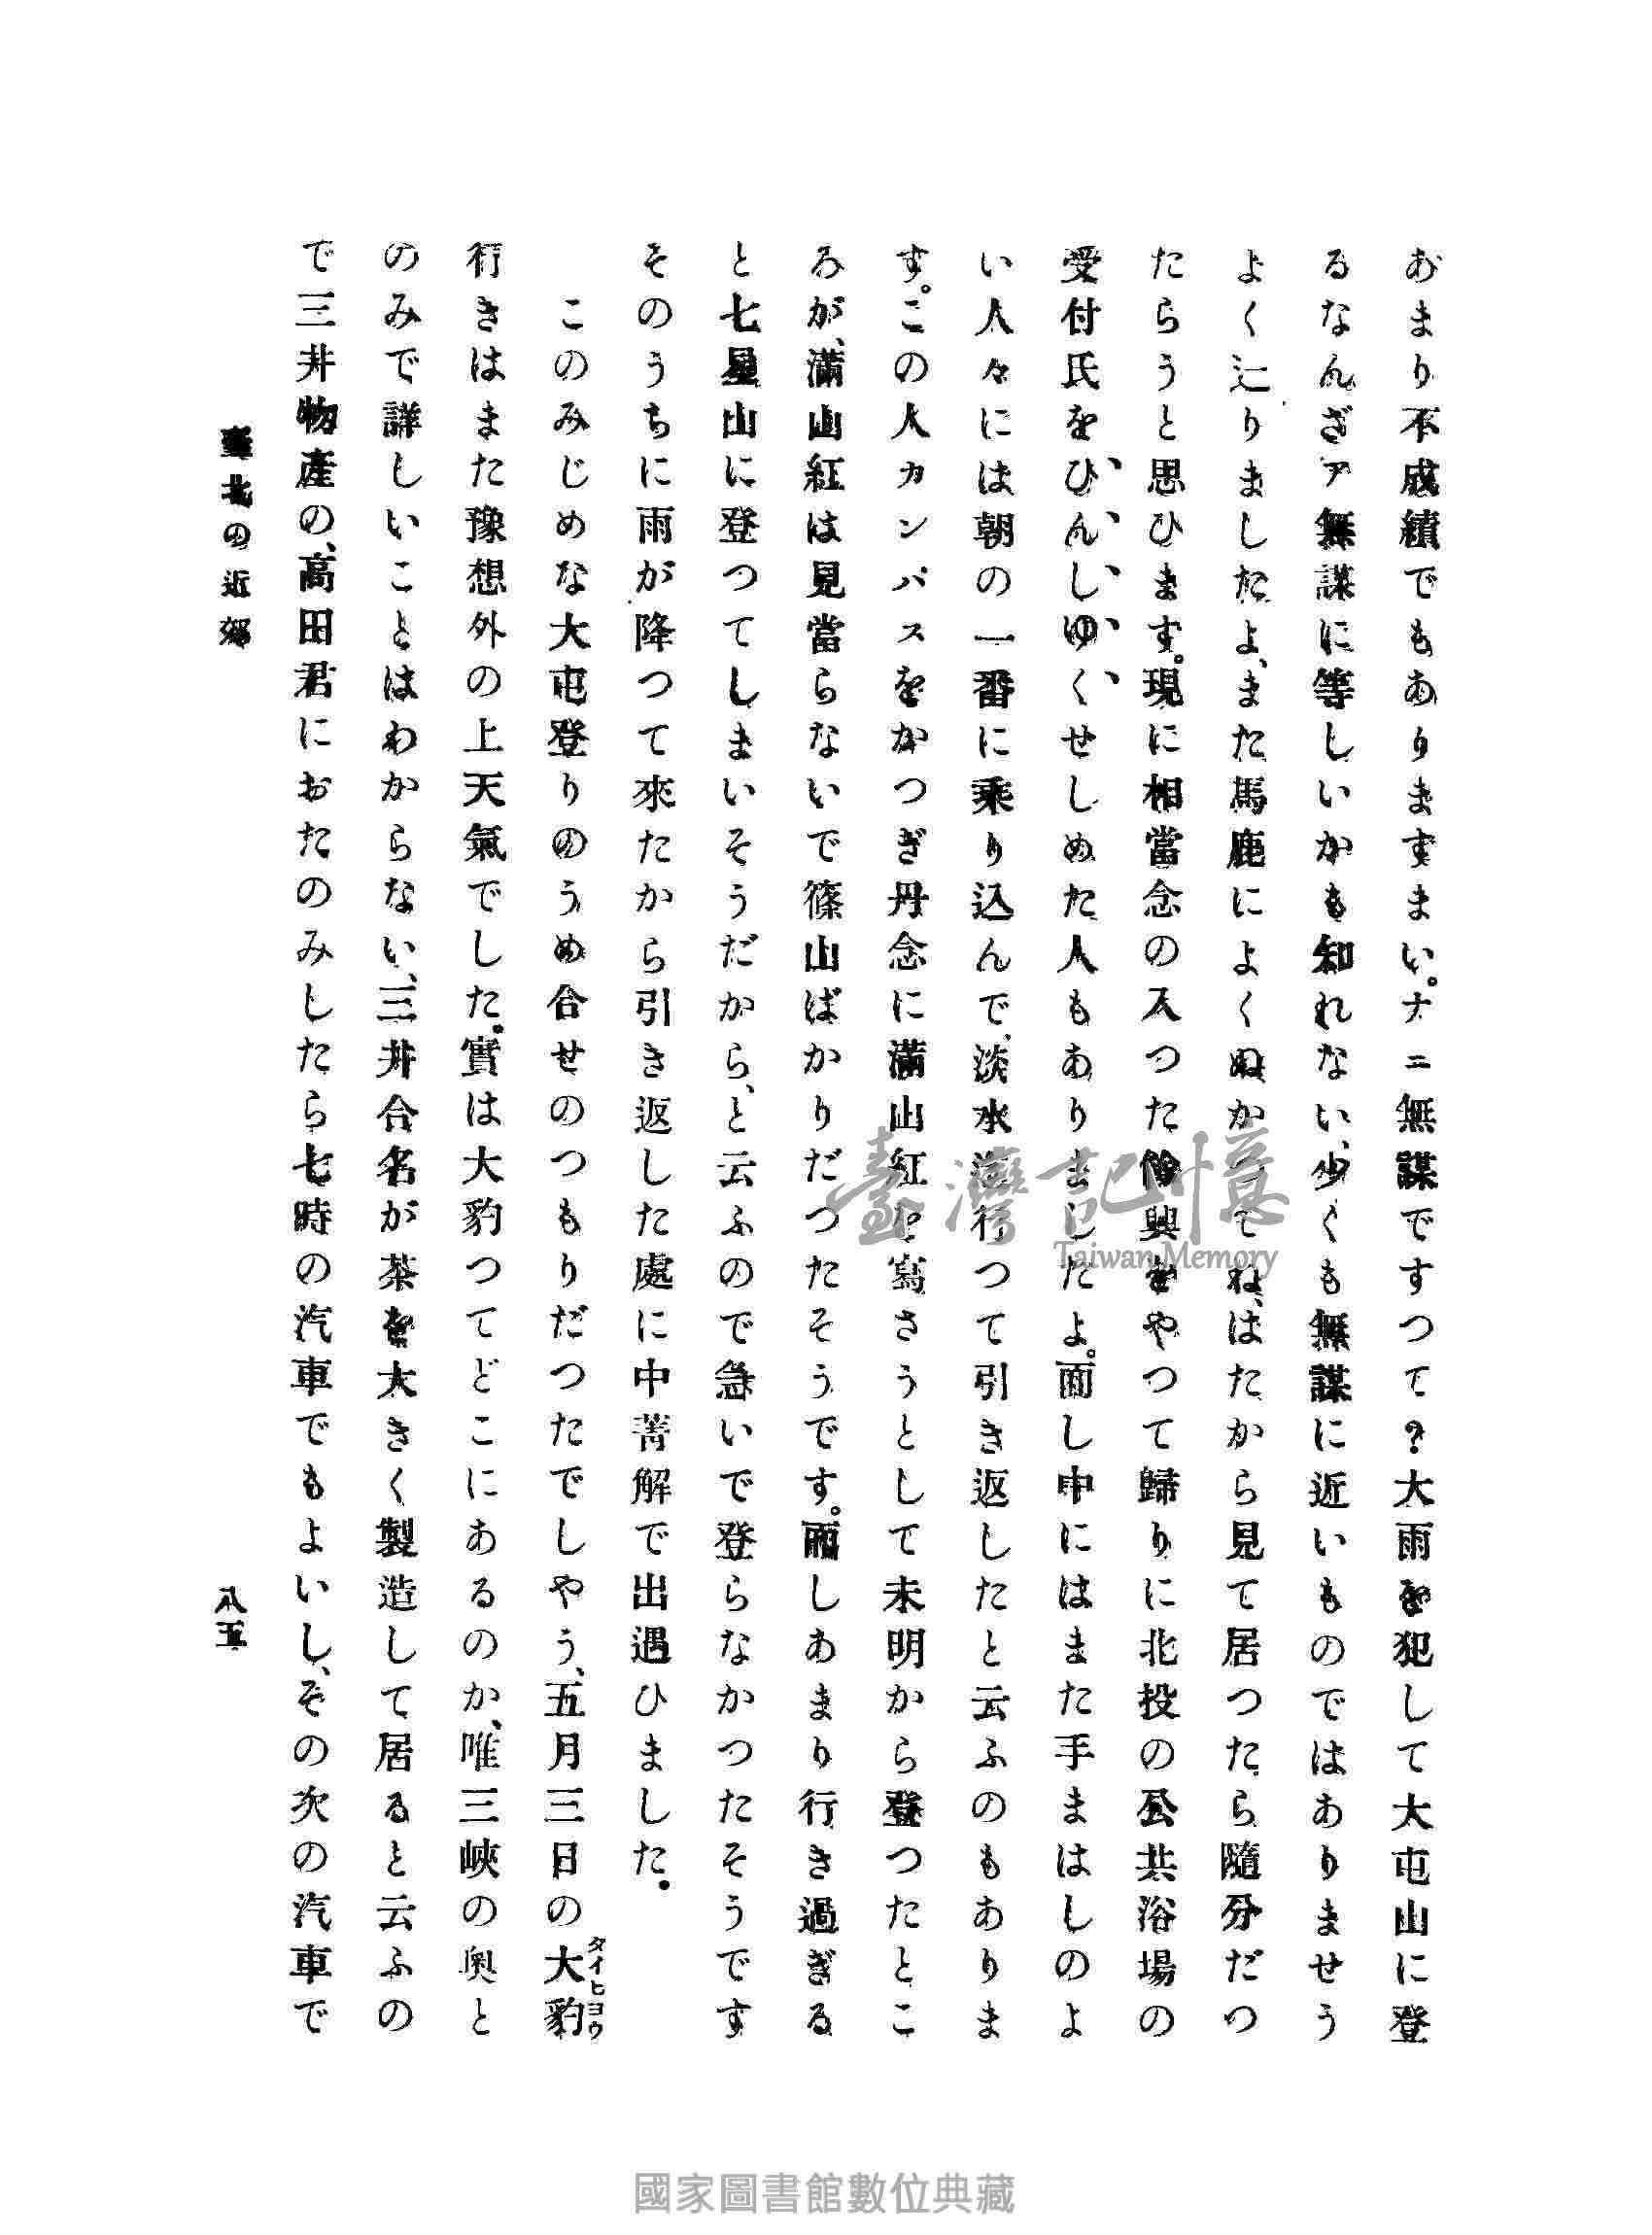 あまり不成績でもありますまい。ナニ無謀ですつて?大雨を犯して大屯山に登
るなんざア無謀に等しいかも知れない、少くも無謀に近いものではありませう
よく辷りましたよ、また馬鹿によくぬかつてね、はたから見て居つたら隨分だつ
たらうと思ひます。現に相當念の入つた餘興をやつて歸りに北投の公共浴場の
受付氏をひんしゆくせしめた人もありましたよ。面し中にはまた手まはしのよ
い人々には朝の一番に乘り込んで、淡水迄行つて引き返したと云ふのもありま
す。この人カンバスをかつぎ丹念に滿山紅を寫さうとして未明から登つたとこ
ろが、滿山紅は見當らないで篠山ばかりだつたそうです。雨しあまり行き過ぎる
と七星山に登つてしまいそうだから、と云ふので急いで登らなかつたそうです
そのうちに雨が降つて來たから引き返した處に中菁解で出遇ひました。
このみじめな大屯登りのうめ合せのつもりだつたでしやう、五月三日の大豹
タイヒヨウ
行きはまた豫想外の上天氣でした。實は大豹つてどこにあるのか、唯三峽の奥と
のみで詳しいことはわからない、三井合名が茶を大きく製造して居ると云ふの
で三井物産の、高田君におたのみしたら七時の汽車でもよいし、その次の汽車で
臺北の近郊
八五
臺灣記憶
Taiwan Memory
國家圖書館數位典藏